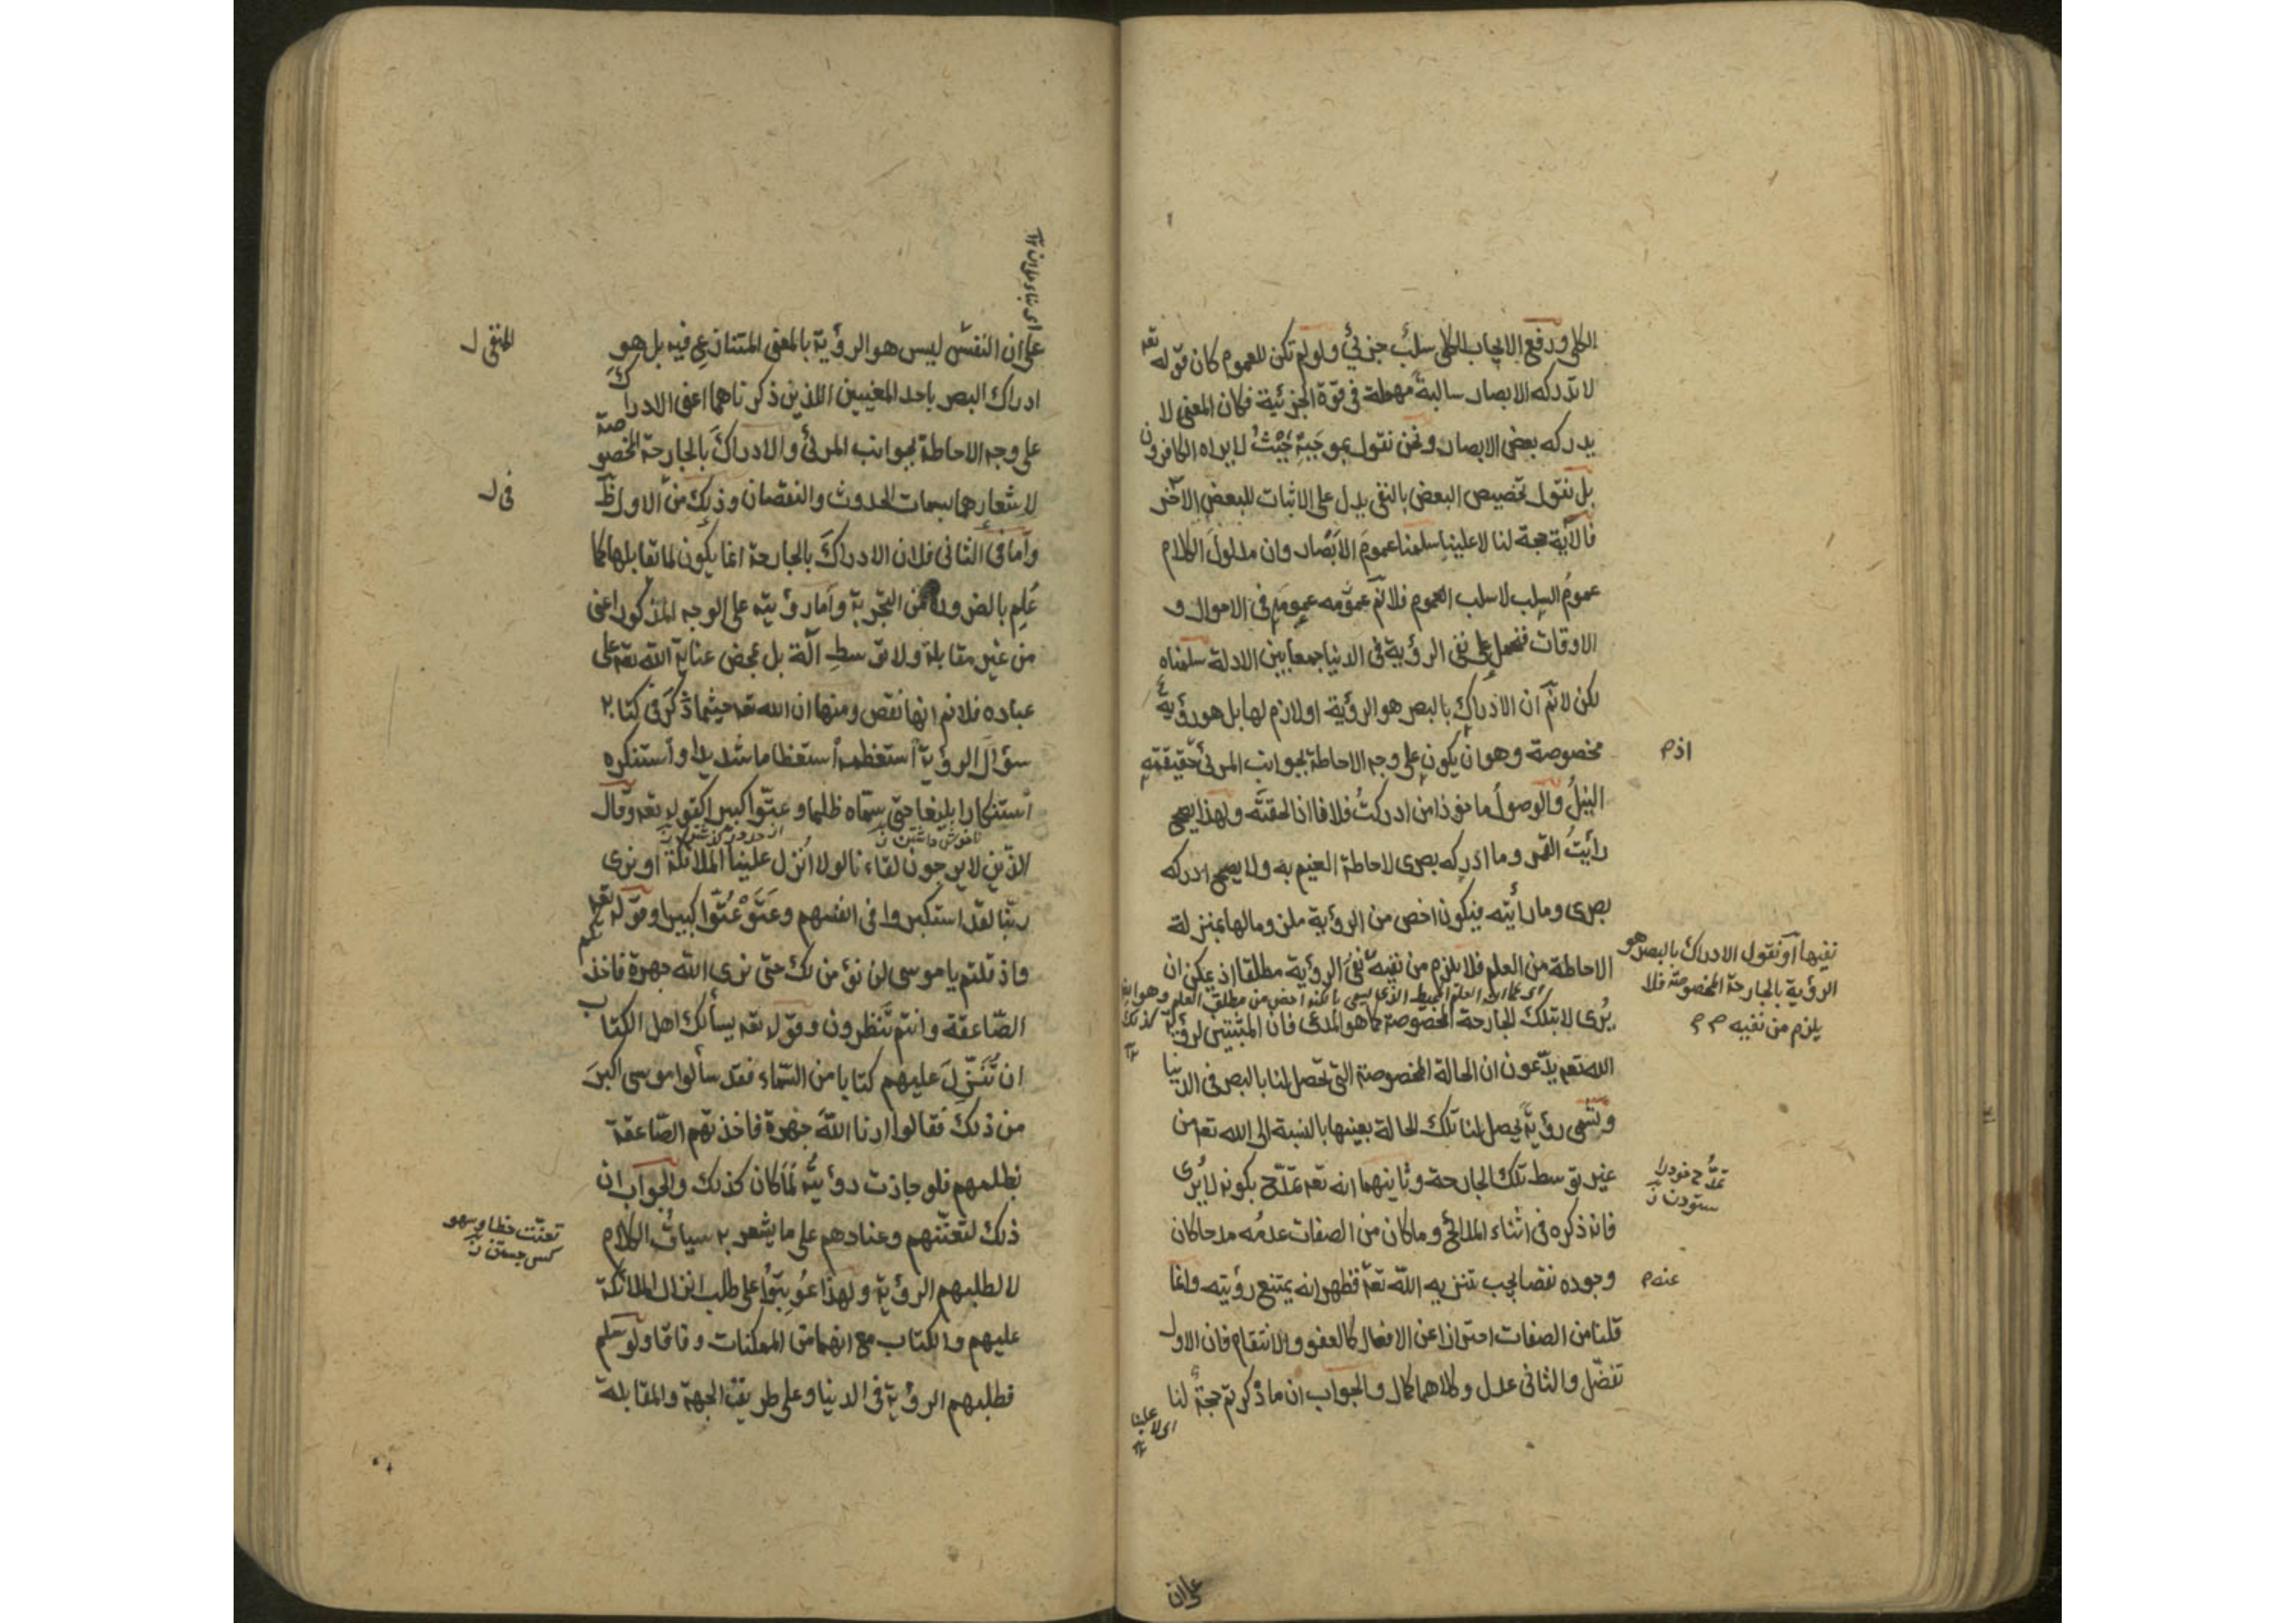 الكلى ورفع الايجاب الكلى سلبٌ جزئىٌ ولو لم تكن للعموم كان قوله تعه
لا تدركه الابصار سالبةً مهملة فى قوّة الجزئية فكان المعنى لا
يدركه بعض الابصار ونحن نقول بموجَبِهِ حَيْثُ لا يراه الكافرون
بل نقول تخصيص البعض بالنفى يدل على الاثبات للبعض الآخر
فالآية حجة لنا لا علينا سلمنا عموم الابصار وان مدلول الكلام
عمومُ السلب لا سلب العموم فلانم عمومه فى الاحوال و
الاوقات فنحمل على نفى الرؤية فى الدنيا جمعاً بين الادلة سلمناه
لكن لانم ان الادراك بالبصر هو الرؤية او لازم لها بل هو رؤية
مخصوصة وهو ان يكون على وجه الاحاطة بجوانب المرئى حقيقته
النيلُ والوصولُ ماخوذا من ادركتُ فلانا اذا لحقتَه ولهذا يصح
رأيتُ القمر وما ادركه بصرى لاحاطة الغيم به ولا يصح ادركه
بصرى وما رأيته فيكون اخص من الرؤية ملزوما لها بمنزلة
الاحاطة من العلم فلا يلزم من نفيه نفىُ الرؤية مطلقا اذ يمكن ان
يُرى لا بتلك الجارحة المخصوصة كما هو المدعى فان المثبتين لرؤية
الله تعه يدّعون ان الحالة المخصوصة التى تحصل لنا بالبصر فى الدنيا
وتسمى رؤيةً يحصل لنا تلك الحالة بعينها بالنسبة الى الله تعه من
غير توسط تلك الجارحة وثانيهما انه تعه تمدّح بكونه لا يُرى
فانه ذكره فى اثناء المدائح وما كان من الصفات عدمُه مدحا كان
وجوده نقصا يجب تنزيه الله تعه فظهر انه يمتنع رؤيته وانما
قلنا من الصفات احترازا عن الافعال كالعفو والانتقام فان الاول
تفضّل والثانى عدل وكلاهما كمال والجواب ان ما ذكرتم حجةٌ لنا
اى لا علينا
اذ م
نفيها او نقول الادراك بالبصر هو
الرؤية بالجارحة المخصوصة فلا
يلزم من نفيه م م
تمدُّح خود را
ستودن
عنه م
على ان
على ان النقص ليس هو الرؤية بالمعنى المتنازع فيه بل هو
ادراك البصر باحد المعنيين اللذين ذكرناهما اعنى الادراك
على وجه الاحاطة بجوانب المرئى والادراكَ بالجارحة المخصوصة
لاشعارهما بسمات الحدوث والنقصان وذلك من الاول ظ
واما فى الثانى فلان الادراكَ بالجارحة انما يكون لما تقابلها كما
عُلِم بالضرورة من التجربة واما رؤيته على الوجه المذكور اعنى
من غير مقابلة ولا توسطِ آلة بل بمحض عناية الله تعه على
عباده فلانم انها نقص ومنها ان الله تعه حيثما ذكر فى كتابه
سؤالَ الرؤية استعظمه استعظاما شديدا واستنكره
استنكارا بليغا حتى سمّاه ظلما وعتوّا كبيرا كقوله تعه وقال
الذين لا يرجون لقاءنا لولا اُنزل علينا الملائكة او نرى
ربّنا لقد استكبروا فى انفسهم وعَتَوْ عُتُوّا كبيرا وقوله تعه
واذ قلتم يا موسى لن نؤمن لك حتى نرى الله جهرة فاخذتكم
الصّاعقة وانتم تَنظرون وقوله تعه يسألك اهل الكتاب
ان تُنَزِّلَ عليهم كتابا من السّماء فقد سألوا موسى اكبرَ
من ذلك فقالوا ارنا اللهَ جهرة فاخذتهم الصّاعقة
بظلمهم فلو جازت رؤيتُه لَمَا كان كذلك والجواب ان
ذلك لتعنّتهم وعنادهم على ما يشعر به سياقُ الكلام
لا لطلبهم الرؤية ولهذا عُوتبوا على طلب انزال الملائكة
عليهم والكتاب مع انهما من الممكنات وفاقا ولو سلم
فطلبهم الرؤية فى الدنيا وعلى طريق الجهة والمقابلة
المنفى ل
فى ل
تعنّت خطا وسهو
كسى جستن